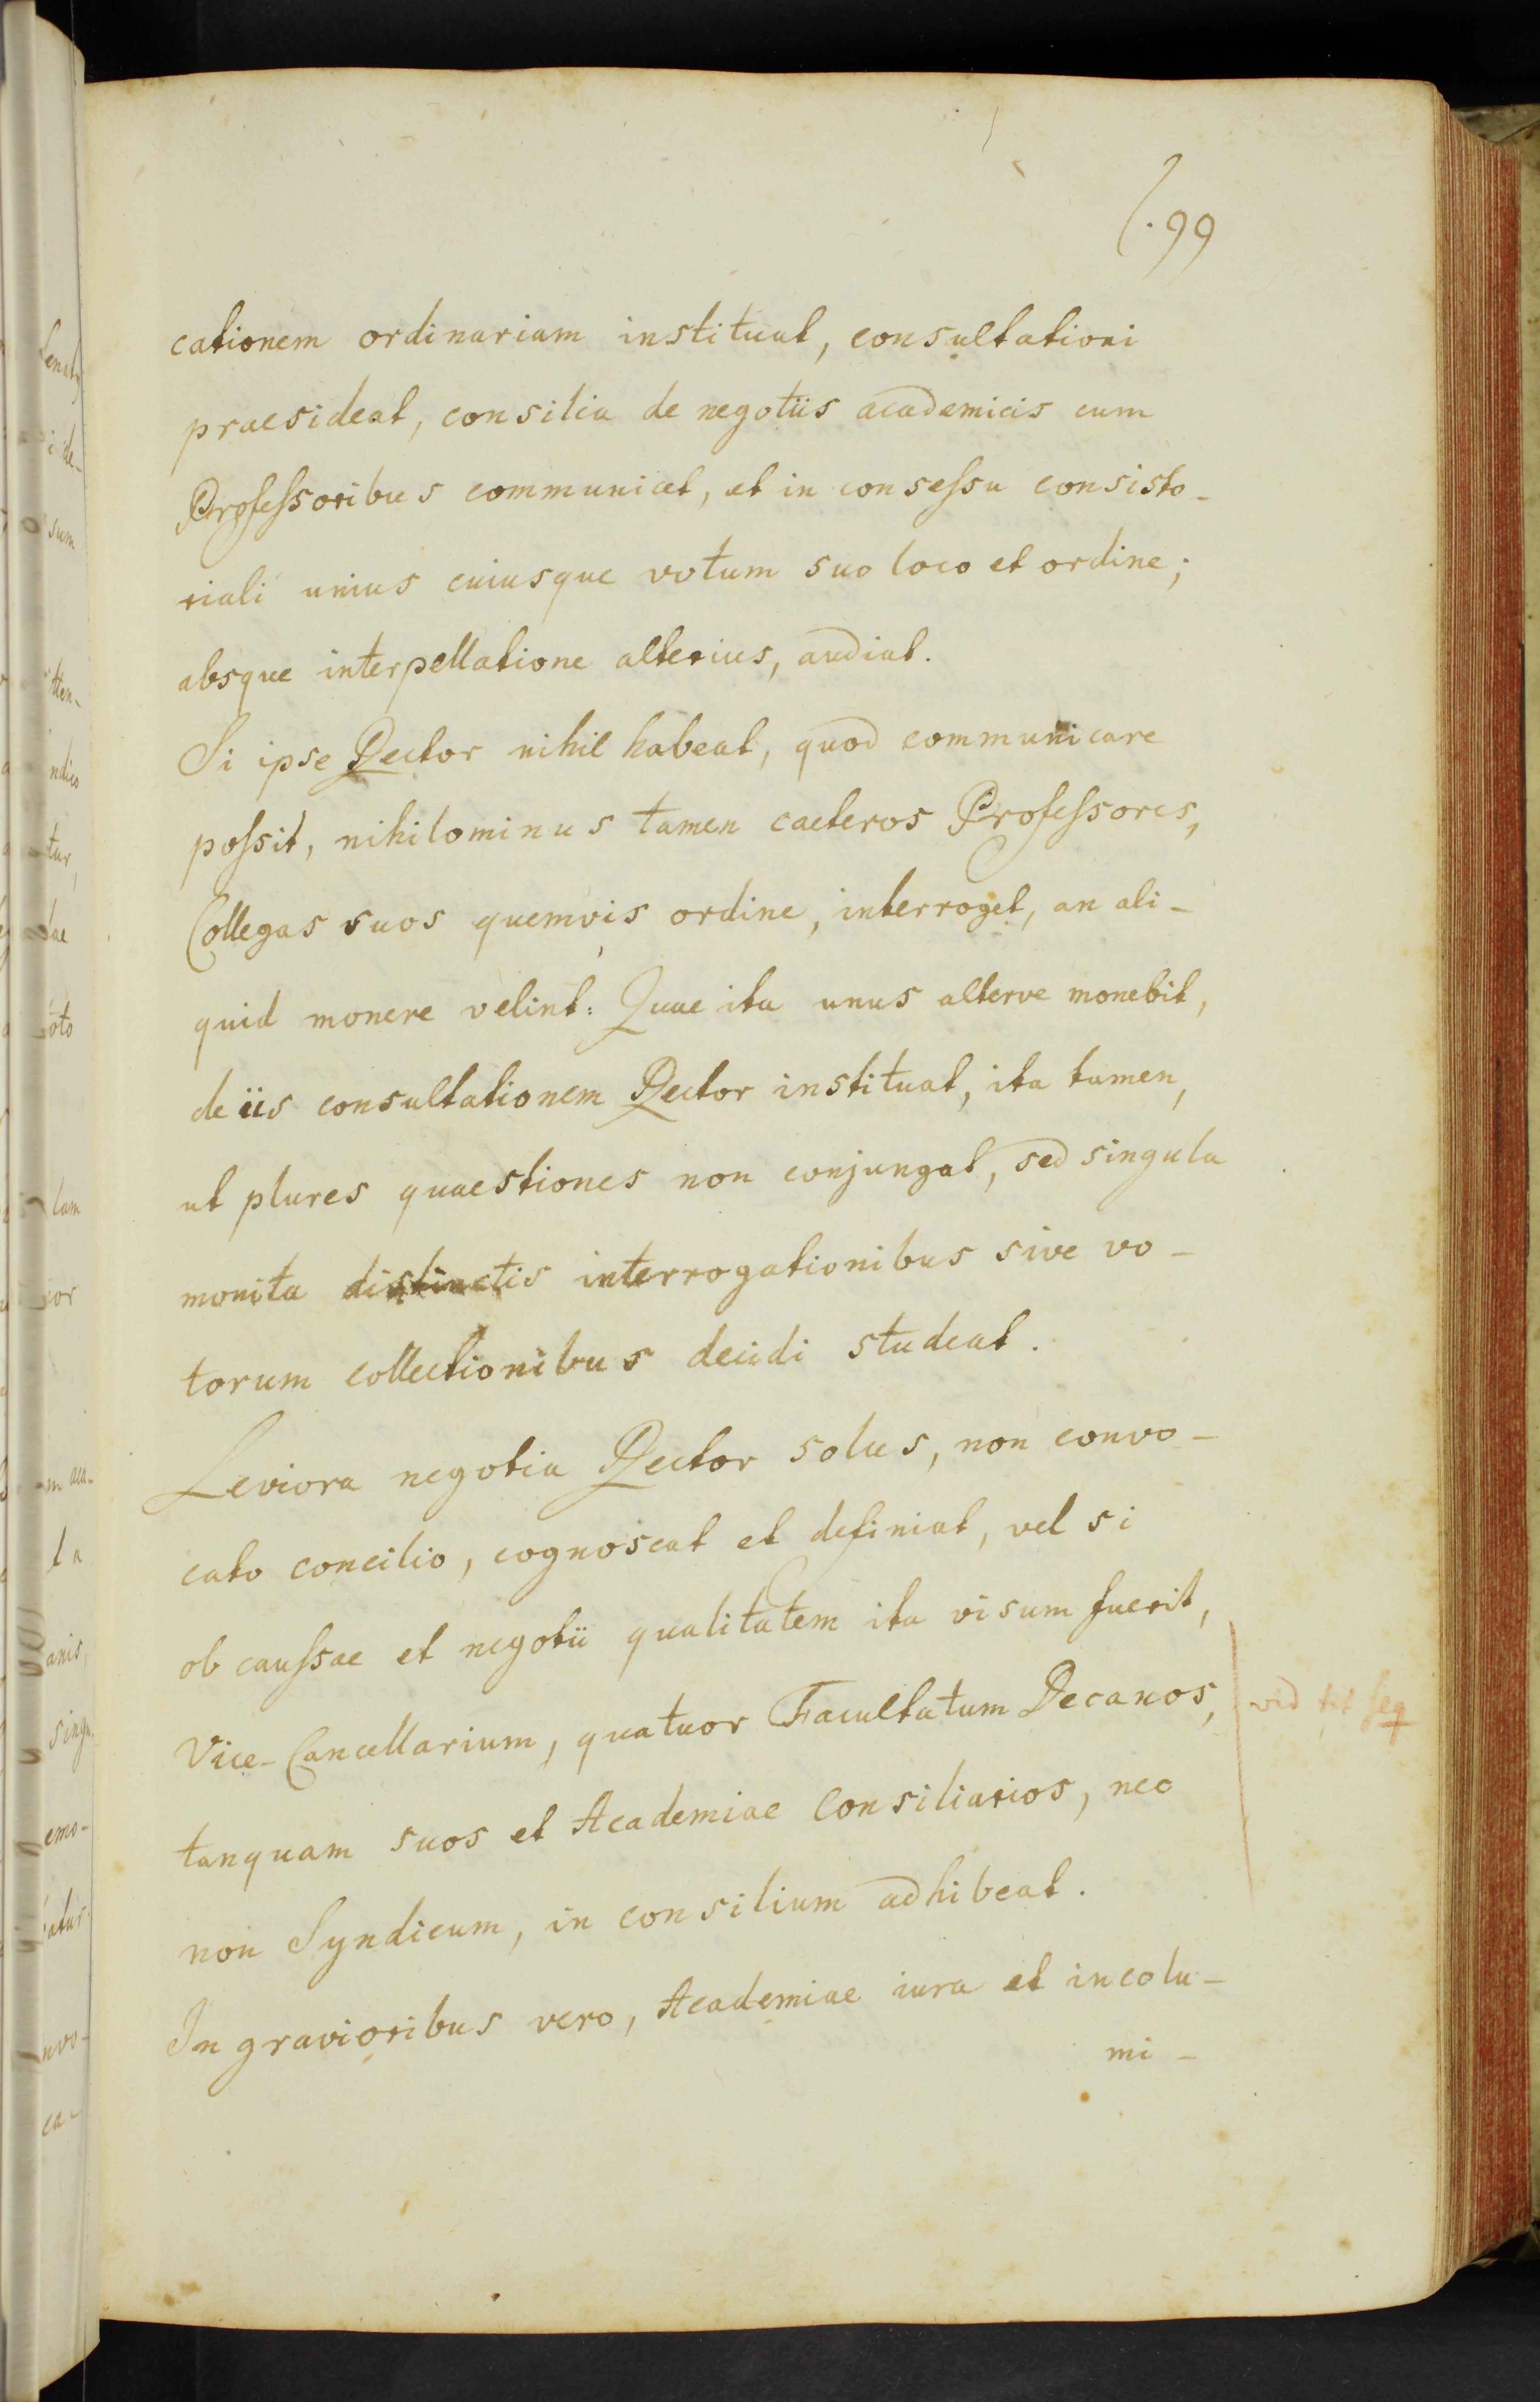 99
cationem ordinariam instituat, consultationi
praesideat, consilia de negotiis academicis cum
Professoribus communicet, et in consessu consisto-
riali unius cuiusque votum suo loco et ordine;
absque interpellatione alterius, audiat.
Si ipse Rector nihil habeat, quod communicare
possit, nihilominus tamen caeteros Professores,
Collegas suos quemvis ordine, interroget, an ali-
quid monere velint: Quae ita unus alterve monebit,
de iis consultationem Rector instituat, ita tamen,
ut plures quaestiones non conjungat, sed singula
monita distinctis interrogationibus sive vo-
torum collectionibus decidi studeat.
Leviora negotia Rector solus, non convo-
cato concilio, cognoscat et definiat, vel si
ob caussae et negotii qualitatem ita visum fuerit,
Vice-Cancellarium, quatuor Facultatum Decanos,
vid tit seq
tanquam suos et Academiae Consiliarios, nec
non Syndicum, in consilium adhibeat.
In gravioribus vero, Academiae iura et incolu-
mi-